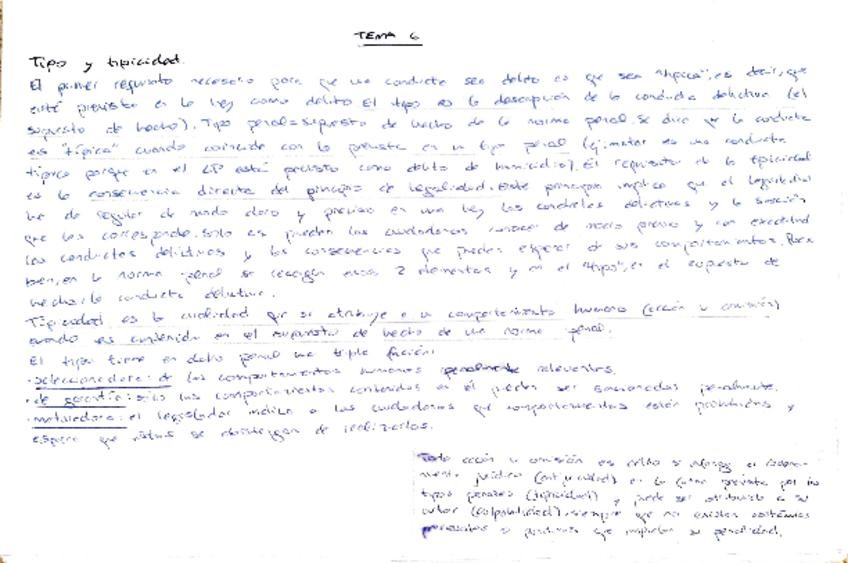 TEMA 6
Tipo y tipicidad.
El primer requisito necesario para que una conducta sea delito es que sea "típica", es decir, que
esté prevista en la ley como delito. El tipo es la descripción de la conducta delictiva (el
supuesto de hecho). Tipo penal = supuesto de hecho de la norma penal. Se dice que la conducta
es "típica" cuando coincide con la prevista en un tipo penal (ej: matar es una conducta
típica porque en el CP está previsto como delito de homicidio). El requisito de la tipicidad
es la consecuencia directa del principio de legalidad. Este principio implica que el legislador
ha de regular de modo claro y preciso en una ley las conductas delictivas y la sanción
que les corresponde. Solo así pueden los ciudadanos conocer de modo previo y con exactitud
las conductas delictivas y las consecuencias que pueden esperar de sus comportamientos. Pues
bien, en la norma penal se recogen esos 2 elementos y en el "tipo", en el supuesto de
hecho, la conducta delictiva.
Tipicidad es la cualidad que se atribuye a un comportamiento humano (acción u omisión)
cuando es contenido en el supuesto de hecho de una norma penal.
El tipo tiene en dcho penal una triple función:
·seleccionadora: de los comportamientos humanos penalmente relevantes.
·de garantía: solo los comportamientos contenidos en él pueden ser sancionados penalmente.
·motivadora: el legislador indica a los ciudadanos que comportamientos están prohibidos y
espera que estos se abstengan de realizarlos.
Toda acción u omisión es delito si infringe el ordena-
miento jurídico (antijuricidad) en la forma prevista por los
tipos penales (tipicidad) y puede ser atribuido a su
autor (culpabilidad), siempre que no existan obstáculos
procesales o punitivos que impidan su penalidad.